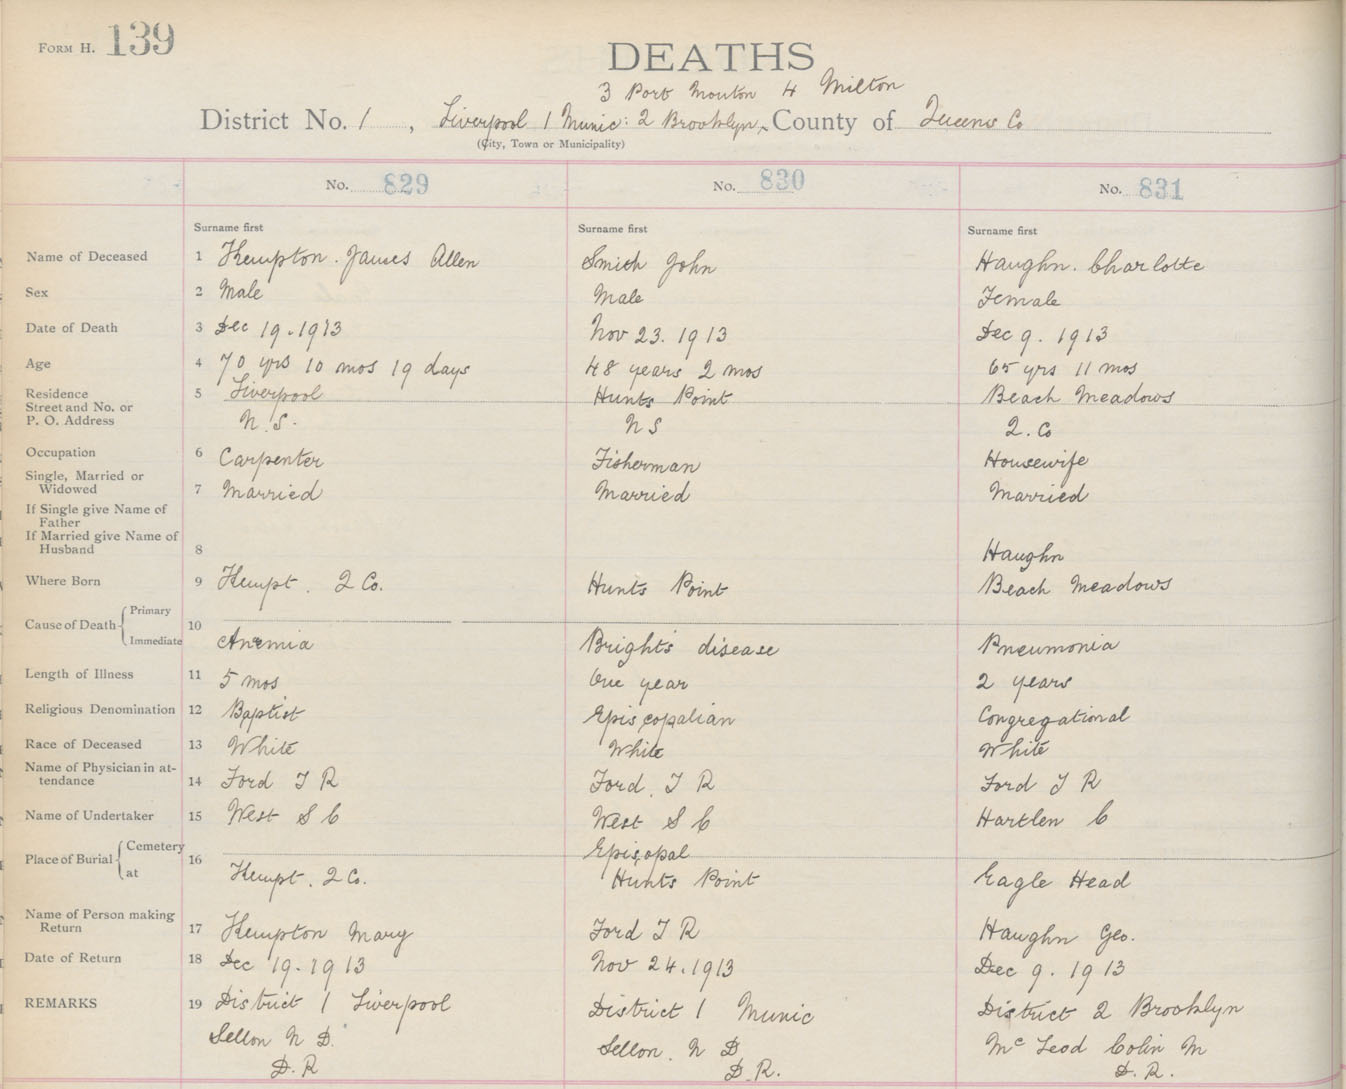 FORM H. 139
DEATHS
3 Port Mouton 4 Milton
District No. 1, Liverpool 1 Munic: 2 Brooklyn, County of Queens Co
(City, Town or Municipality)
No. 829 No. 830 No. 831
Surname first Surname first Surname first
Name of Deceased 1 Kempton. James Allen Smith John Haughn. Charlotte
Sex 2 Male Male Female
Date of Death 3 Dec 19. 1913 Nov 23. 1913 Dec 9. 1913
Age 4 70 yrs 10 mos 19 days 48 years 2 mos 65 yrs 11 mos
Residence 5 Liverpool Hunts Point Beach Meadows
Street and No. or
P. O. Address N. S. N S Q. Co
Occupation 6 Carpenter Fisherman Housewife
Single, Married or
Widowed 7 Married Married Married
If Single give Name of
Father
If Married give Name of
Husband 8 Haughn
Where Born 9 Kempt. Q Co. Hunts Point Beach Meadows
Cause of Death Primary
10
Immediate Anemia Brights disease Pneumonia
Length of Illness 11 5 mos One year 2 years
Religious Denomination 12 Baptist Episcopalian Congregational
Race of Deceased 13 White White White
Name of Physician in at-
tendance 14 Ford T R Ford. T R Ford T R
Name of Undertaker 15 West S C West S C Hartlen C
Place of Burial Cemetery 16 Episcopal
at Kempt. Q Co. Hunts Point Eagle Head
Name of Person making
Return 17 Kempton Mary Ford T R Haughn Geo.
Date of Return 18 Dec 19. 1913 Nov 24. 1913 Dec 9. 1913
REMARKS 19 District 1 Liverpool District 1 Munic District 2 Brooklyn
Sellon N D. Sellon. N D McLeod Colin M
D. R D. R. D. R.